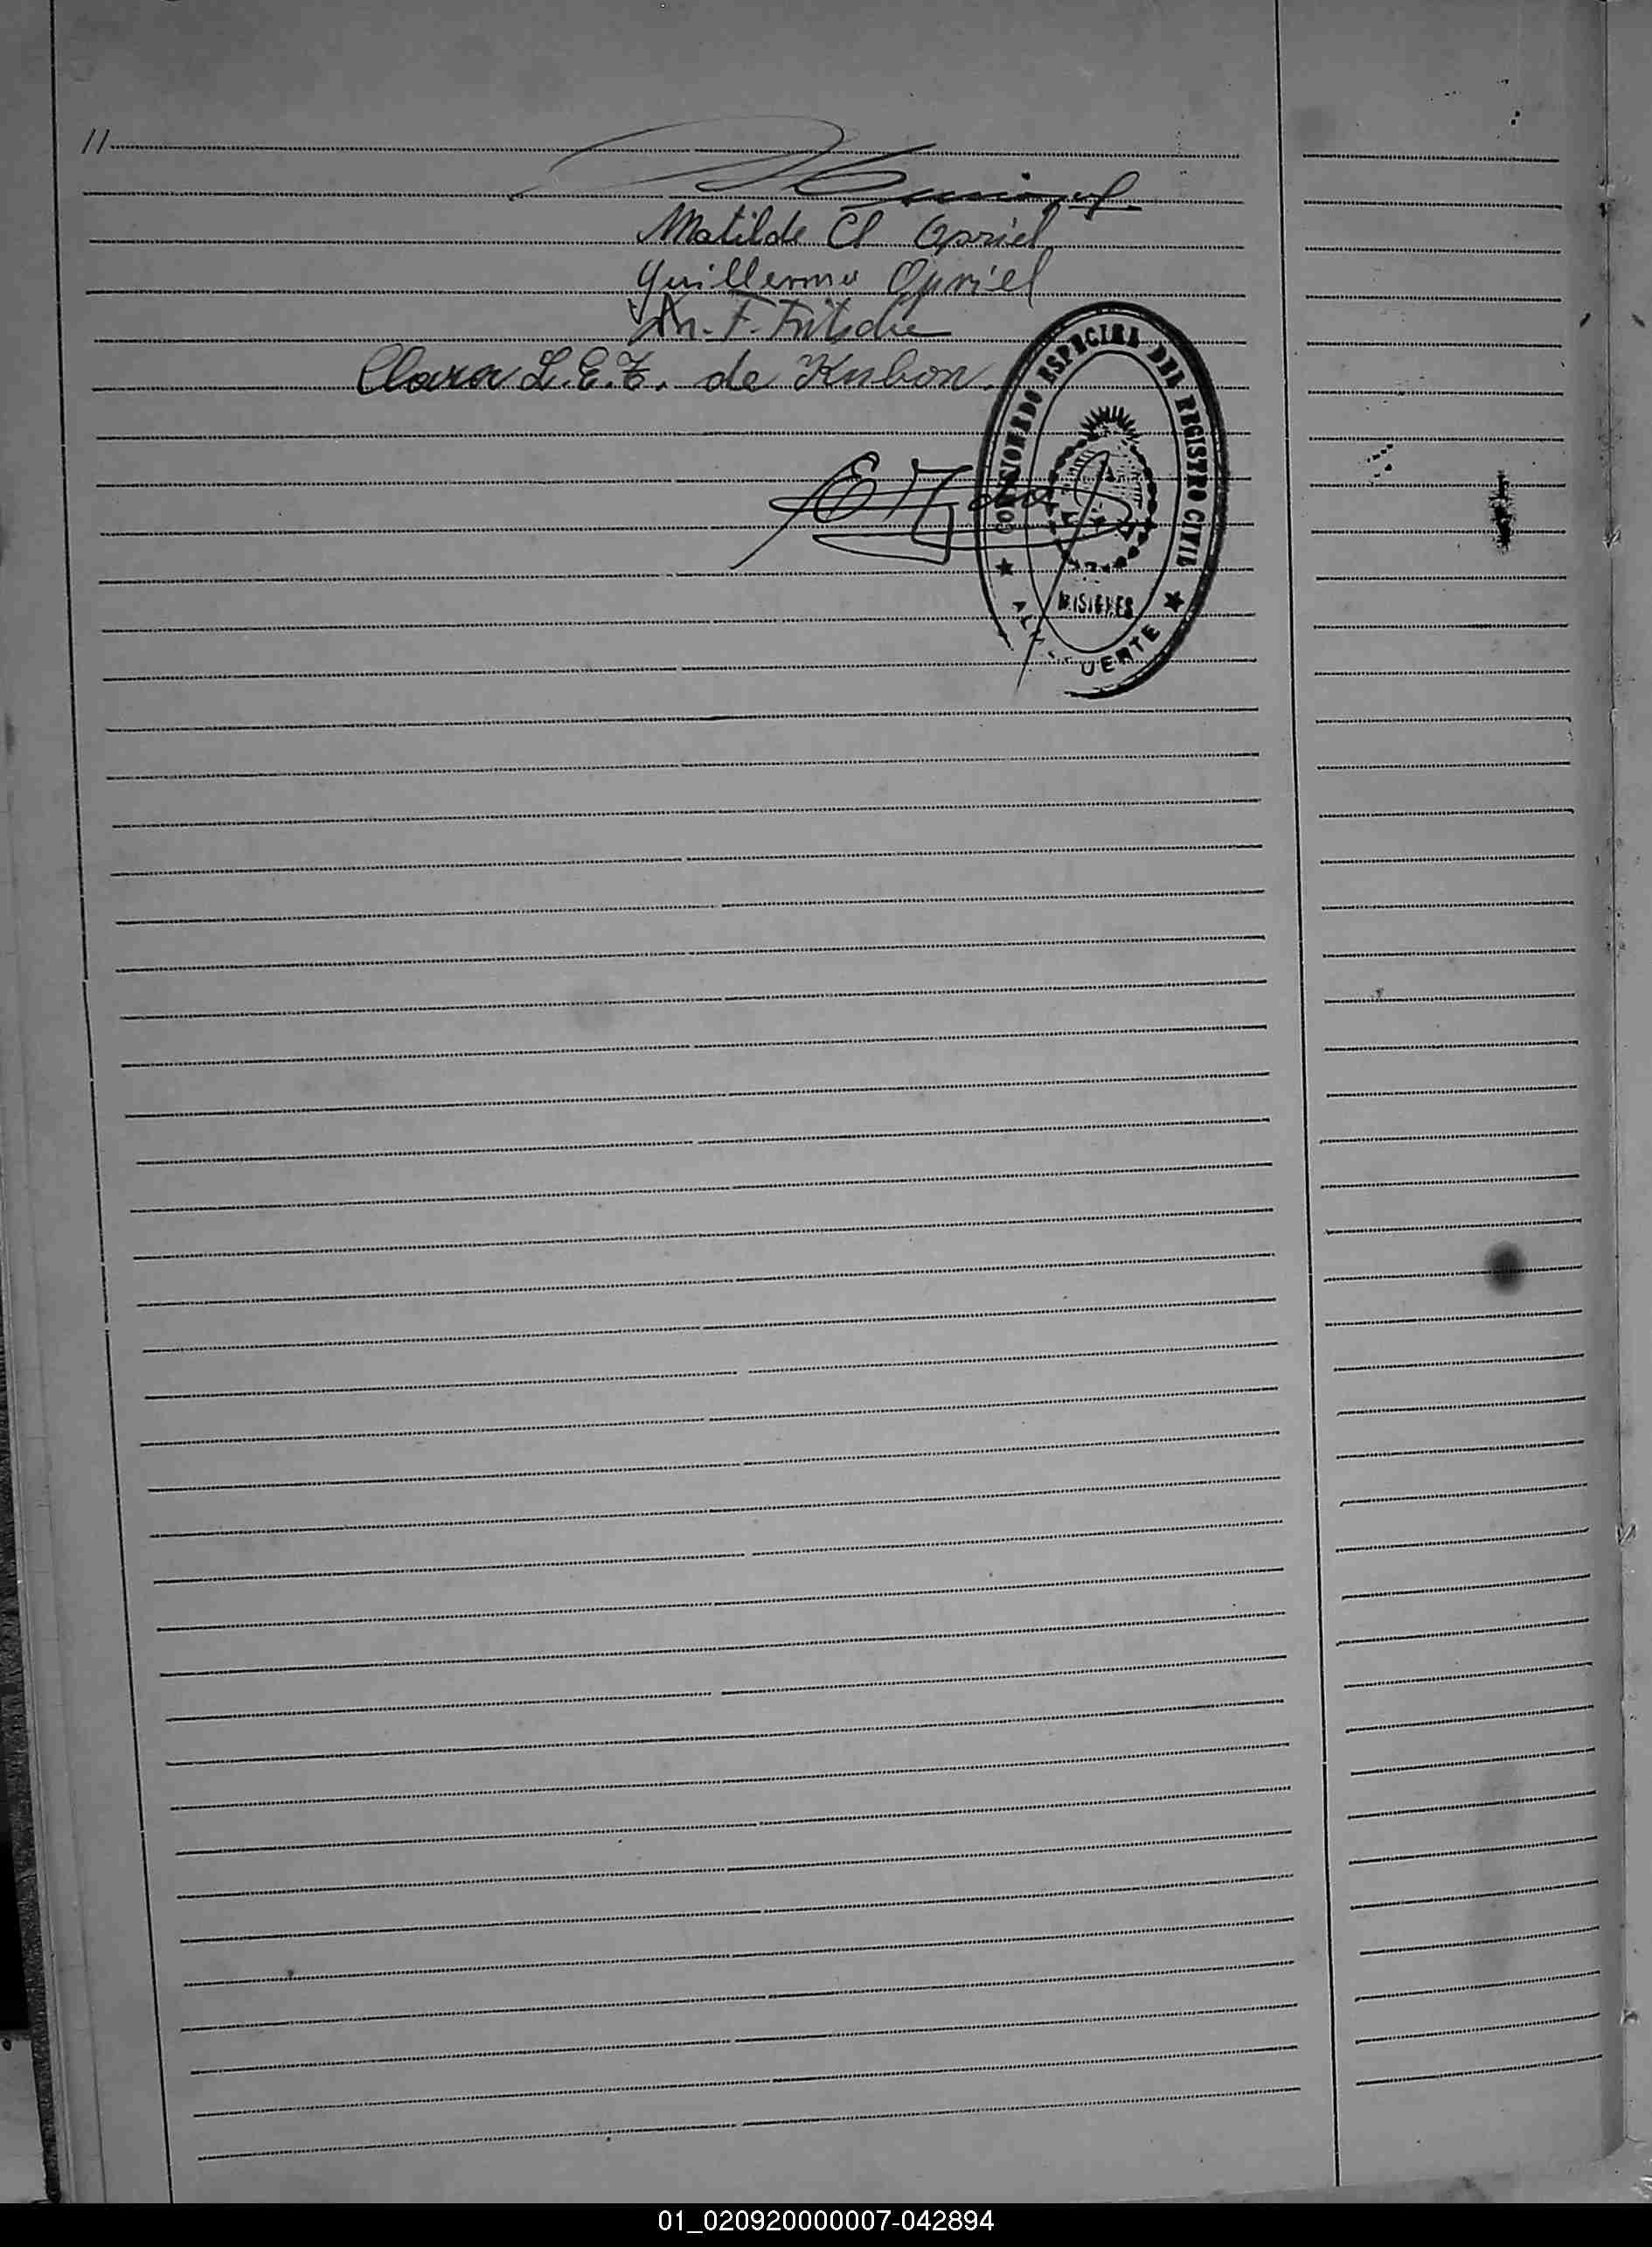 //
Matilde Cl Opriel
Guillermo Opriel
F. Fritsche
Clara L. E. Z. de Kubon.
COMISIONADO ESPECIAL DEL REGISTRO CIVIL
MISIONES
01_020920000007-042894